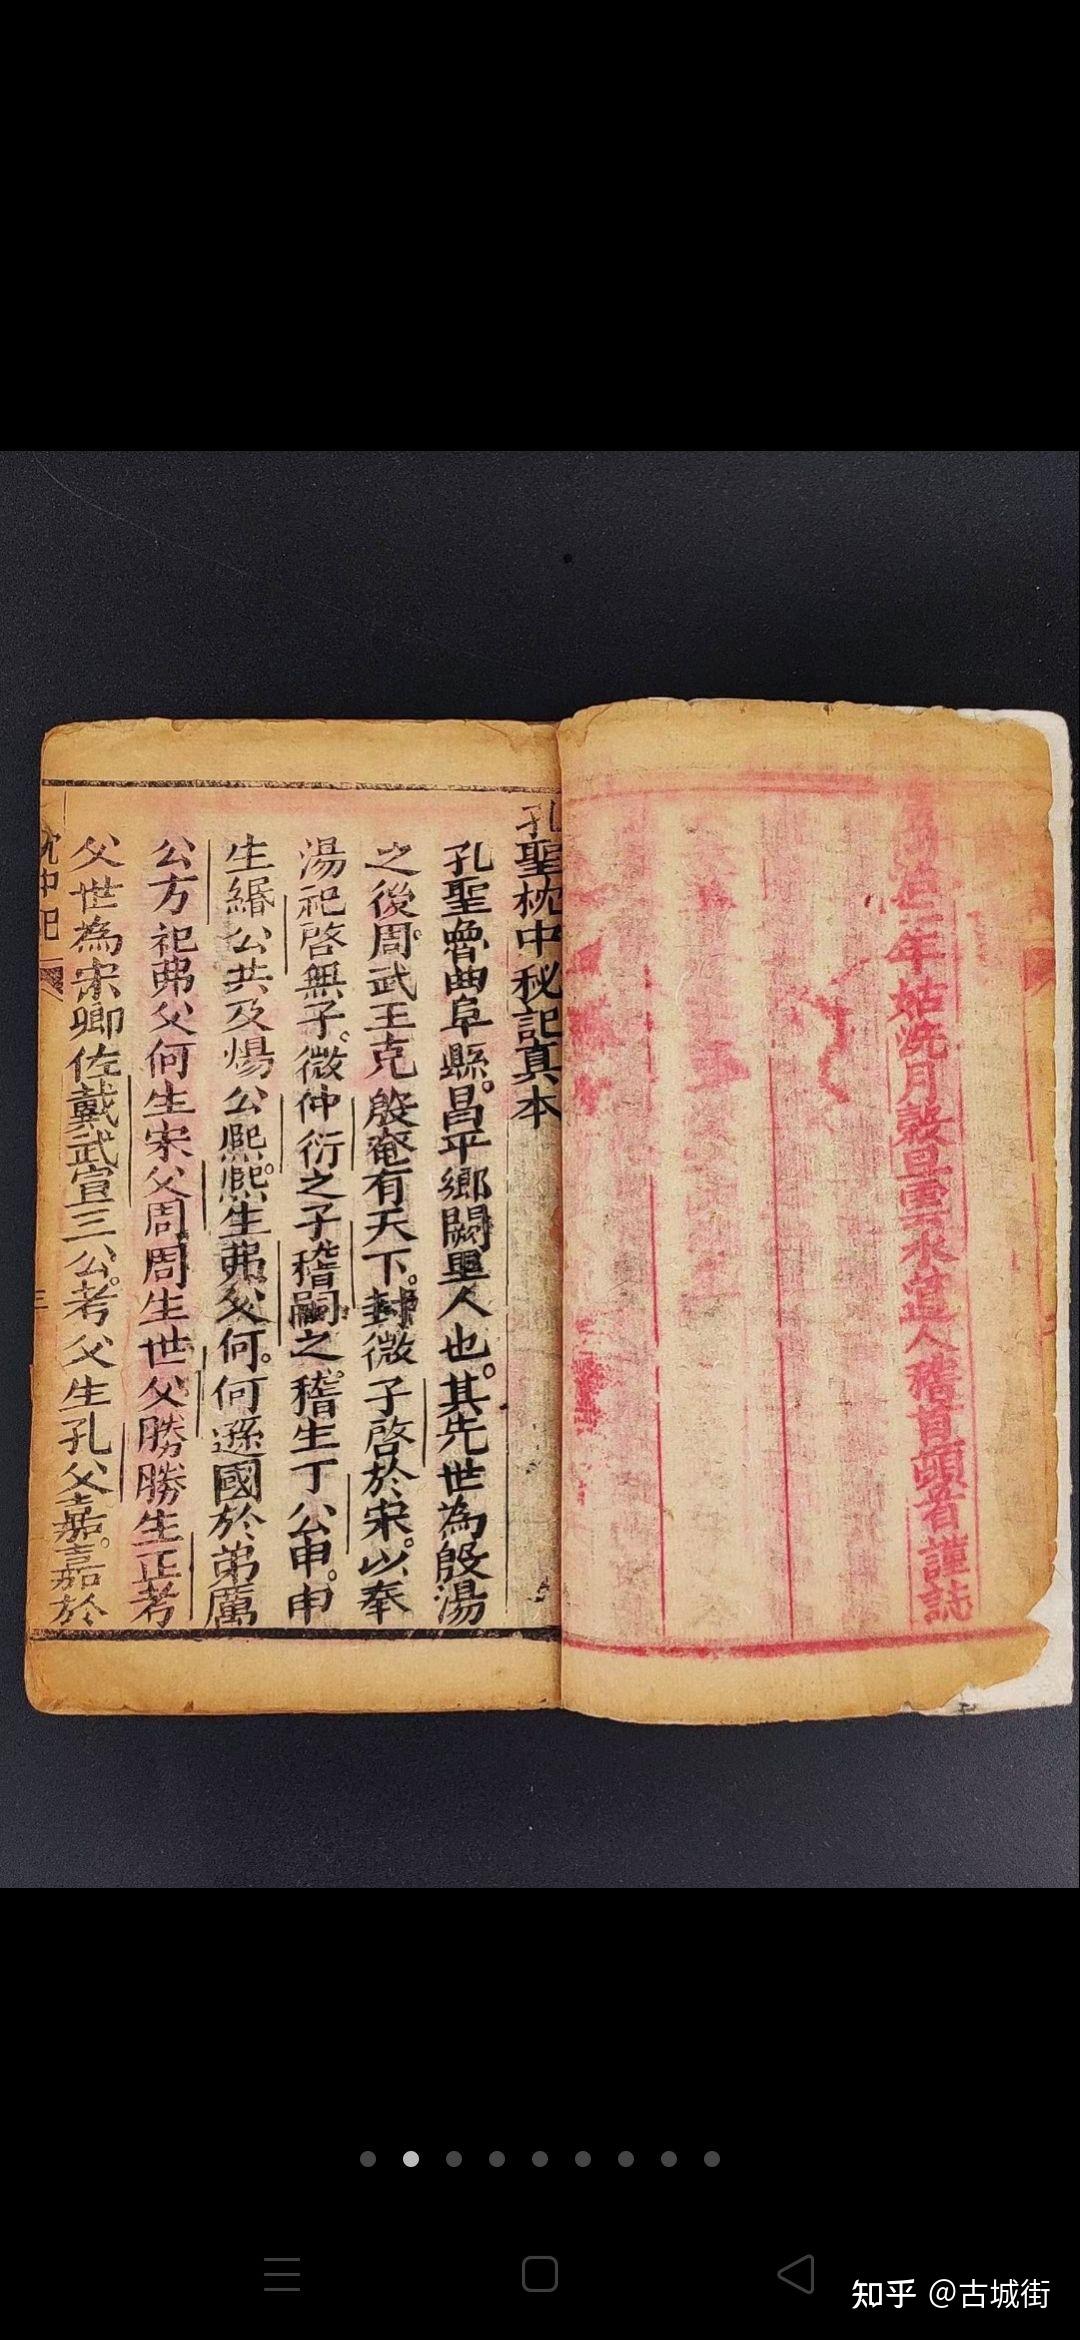 年姑洗月穀旦雲水道人稽首頓首謹誌
孔聖枕中秘記真本
孔聖魯曲阜縣。昌平鄉闕里人也。其先世為殷湯
之後。周武王克殷奄有天下。封微子啓於宋。以奉
湯祀啓無子。微仲衍之子稽嗣之。稽生丁公申。申
生緡公共及煬公熙熙。生弗父何。何遜國於弟厲
公方祀弗父何生宋父周周生世父勝勝生正考
父世為宋卿佐戴武宣三公。考父生孔父嘉。嘉於
枕中記
三
知乎 @古城街